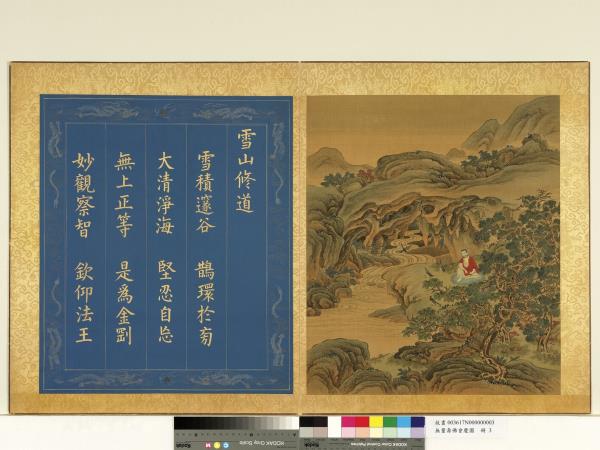 雪山修道
雪積邃谷 鵲環於旁
大清淨海 堅忍自忘
無上正等 是爲金剛
妙觀察智 欽仰法王
故畫003617N000000003
無量壽佛會慶圖 冊 3
KODAK Gray Scale
KODAK Color Control Patches